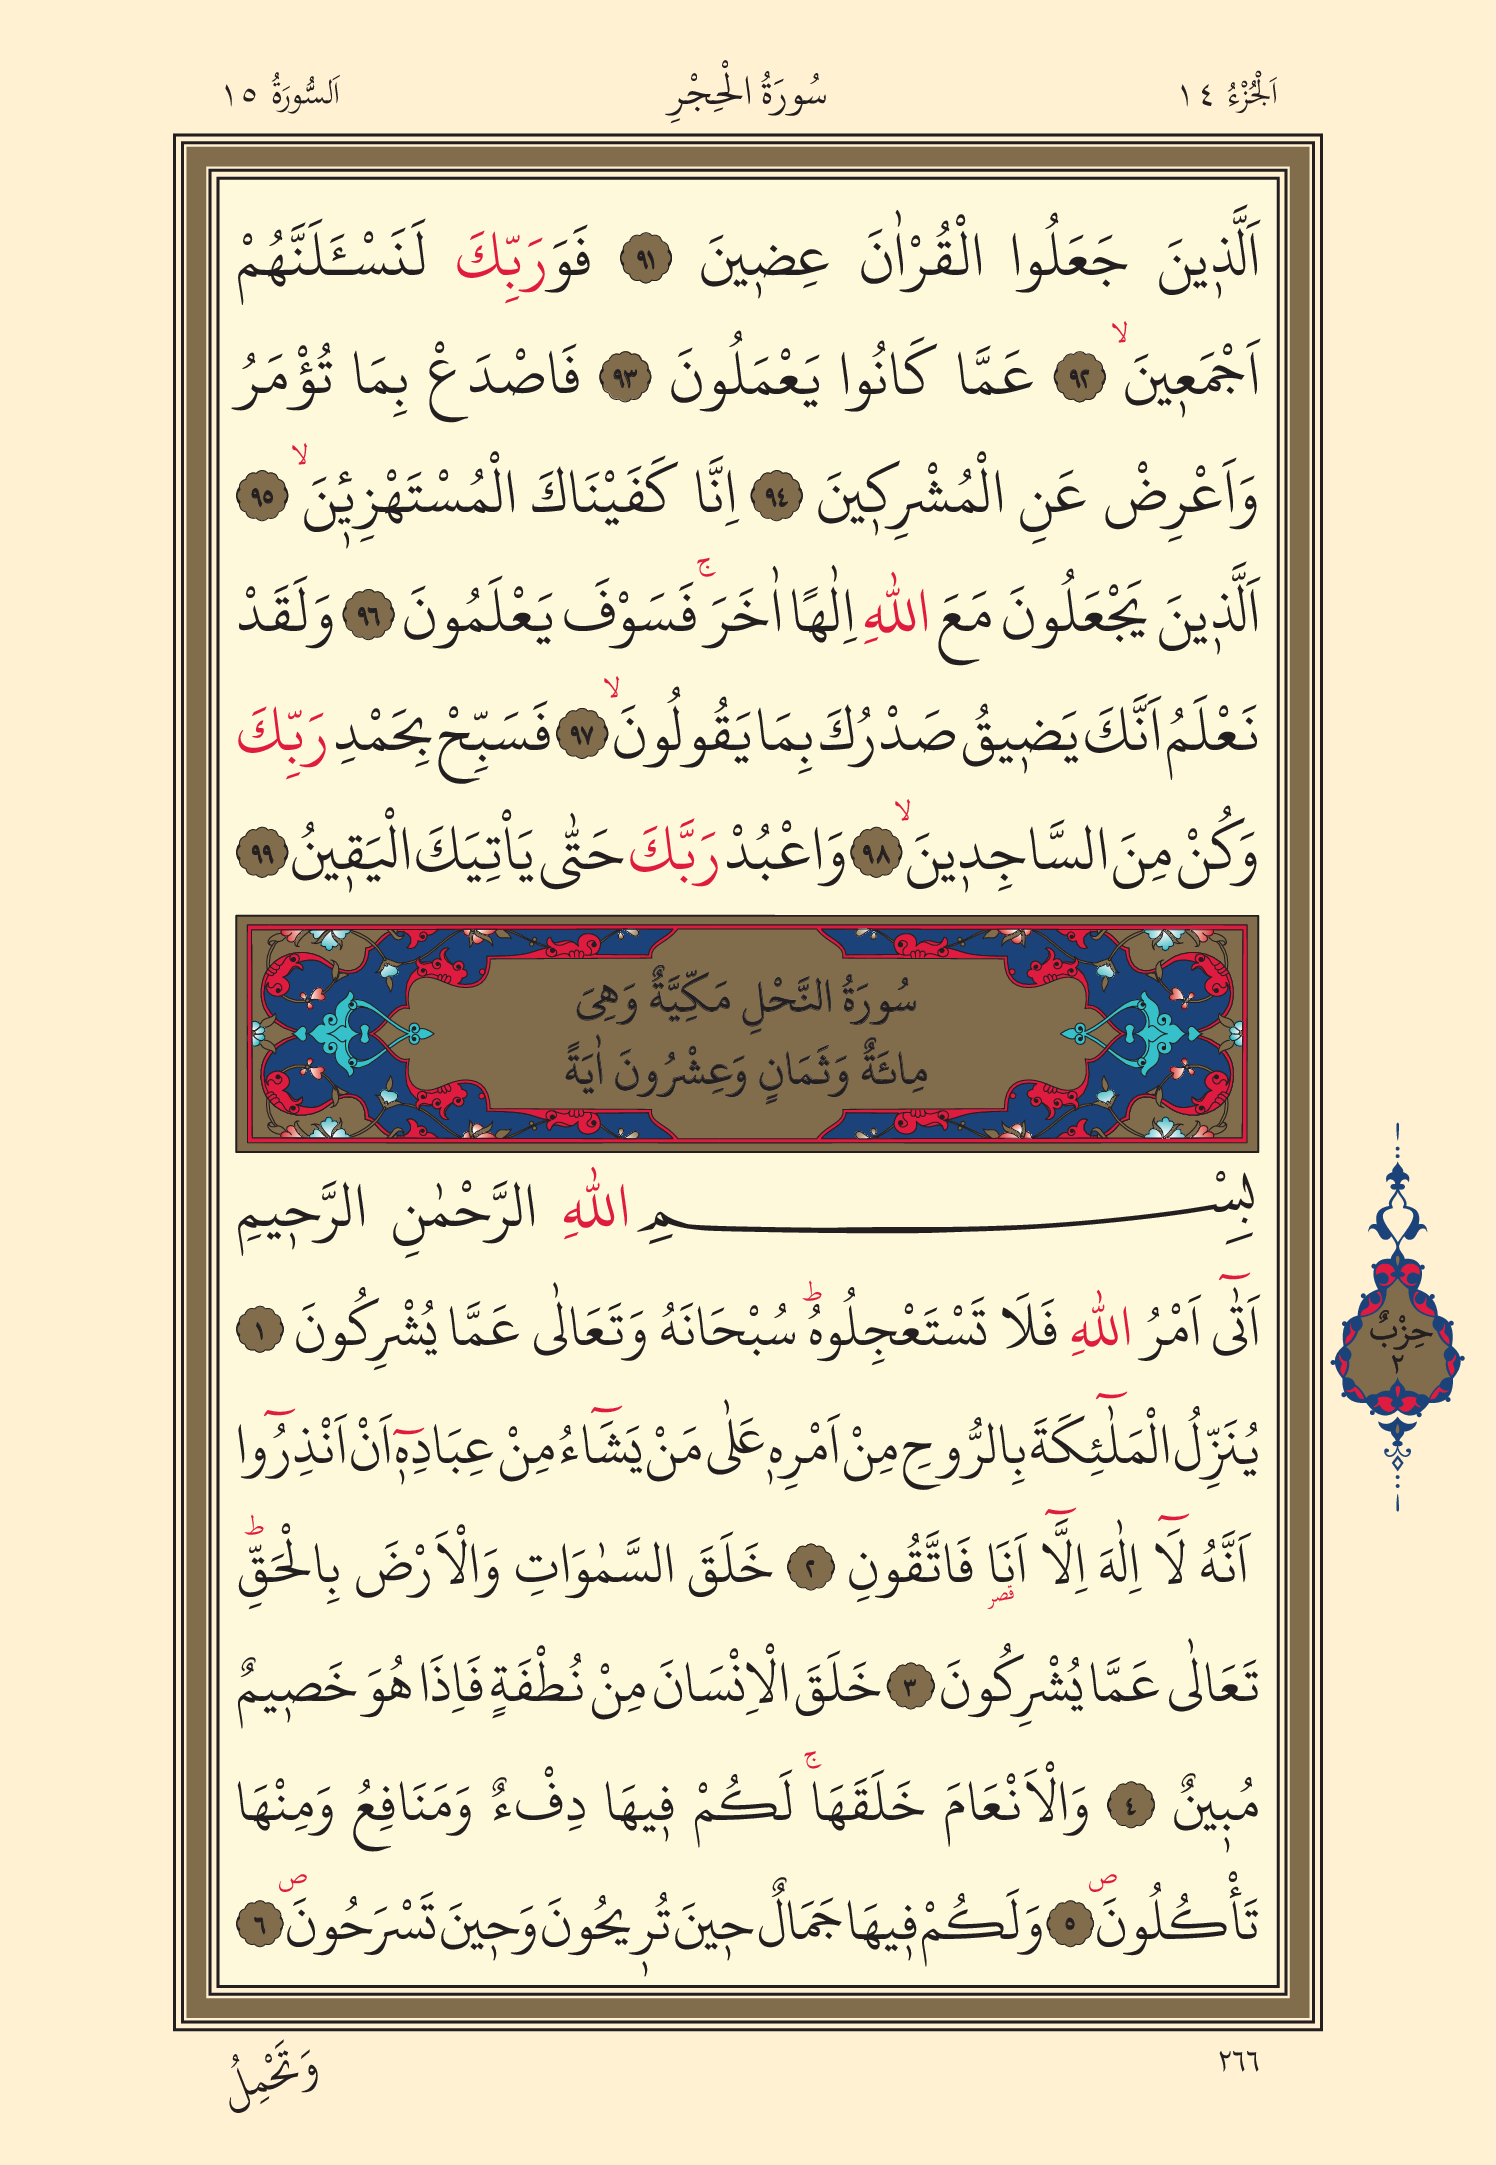 اَلْجُزْءُ ١٤
سُورَةُ الْحِجْرِ
اَلسُّورَةُ ١٥
اَلَّذ۪ينَ جَعَلُوا الْقُرْاٰنَ عِض۪ينَ ٩١ فَوَرَبِّكَ لَنَسْـَٔلَنَّهُمْ
اَجْمَع۪ينَۙ ٩٢ عَمَّا كَانُوا يَعْمَلُونَ ٩٣ فَاصْدَعْ بِمَا تُؤْمَرُ
وَاَعْرِضْ عَنِ الْمُشْرِك۪ينَ ٩٤ اِنَّا كَفَيْنَاكَ الْمُسْتَهْزِء۪ينَۙ ٩٥
اَلَّذ۪ينَ يَجْعَلُونَ مَعَ اللّٰهِ اِلٰهًا اٰخَرَۚ فَسَوْفَ يَعْلَمُونَ ٩٦ وَلَقَدْ
نَعْلَمُ اَنَّكَ يَض۪يقُ صَدْرُكَ بِمَا يَقُولُونَۙ ٩٧ فَسَبِّحْ بِحَمْدِ رَبِّكَ
وَكُنْ مِنَ السَّاجِد۪ينَۙ ٩٨ وَاعْبُدْ رَبَّكَ حَتّٰى يَاْتِيَكَ الْيَق۪ينُ ٩٩
سُورَةُ النَّحْلِ مَكِّيَّةٌ وَهِىَ
مِائَةٌ وَثَمَانٍ وَعِشْرُونَ اٰيَةً
بِسْمِ اللّٰهِ الرَّحْمٰنِ الرَّح۪يمِ
اَتٰٓى اَمْرُ اللّٰهِ فَلَا تَسْتَعْجِلُوهُۜ سُبْحَانَهُ وَتَعَالٰى عَمَّا يُشْرِكُونَ ١
يُنَزِّلُ الْمَلٰٓئِكَةَ بِالرُّوحِ مِنْ اَمْرِه۪ عَلٰى مَنْ يَشَٓاءُ مِنْ عِبَادِه۪ٓ اَنْ اَنْذِرُٓوا
اَنَّهُ لَٓا اِلٰهَ اِلَّٓا اَنَا۬ فَاتَّقُونِ ٢ خَلَقَ السَّمٰوَاتِ وَالْاَرْضَ بِالْحَقِّۜ
قصر
تَعَالٰى عَمَّا يُشْرِكُونَ ٣ خَلَقَ الْاِنْسَانَ مِنْ نُطْفَةٍ فَاِذَا هُوَ خَص۪يمٌ
مُب۪ينٌ ٤ وَالْاَنْعَامَ خَلَقَهَاۚ لَكُمْ ف۪يهَا دِفْءٌ وَمَنَافِعُ وَمِنْهَا
تَأْكُلُونَۖ ٥ وَلَكُمْ ف۪يهَا جَمَالٌ ح۪ينَ تُر۪يحُونَ وَح۪ينَ تَسْرَحُونَۖ ٦
حِزْبٌ
٢
٢٦٦
وَتَحْمِلُ